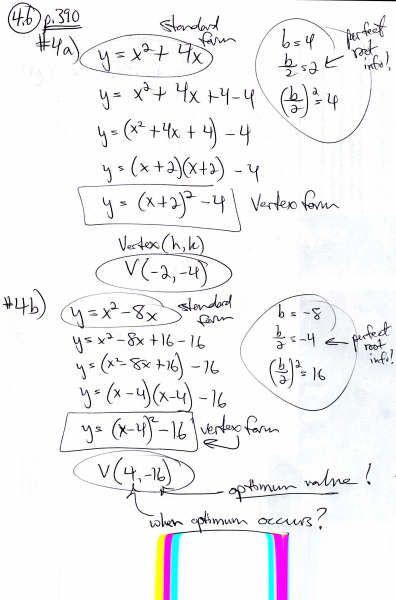 4.6 p.390
#4a)
standard form
y = x² + 4x
y = x² + 4x + 4 - 4
y = (x² + 4x + 4) - 4
y = (x+2)(x+2) - 4
y = (x+2)² - 4 Vertex form
Vertex (h, k)
V(-2, -4)
b = 4
b/2 = 2 ← perfect root info!
(b/2)² = 4
#4b)
y = x² - 8x standard form
y = x² - 8x + 16 - 16
y = (x² - 8x + 16) - 16
y = (x-4)(x-4) - 16
y = (x-4)² - 16 vertex form
V(4, -16)
optimum value!
when optimum occurs?
b = -8
b/2 = -4 ← perfect root info!
(b/2)² = 16